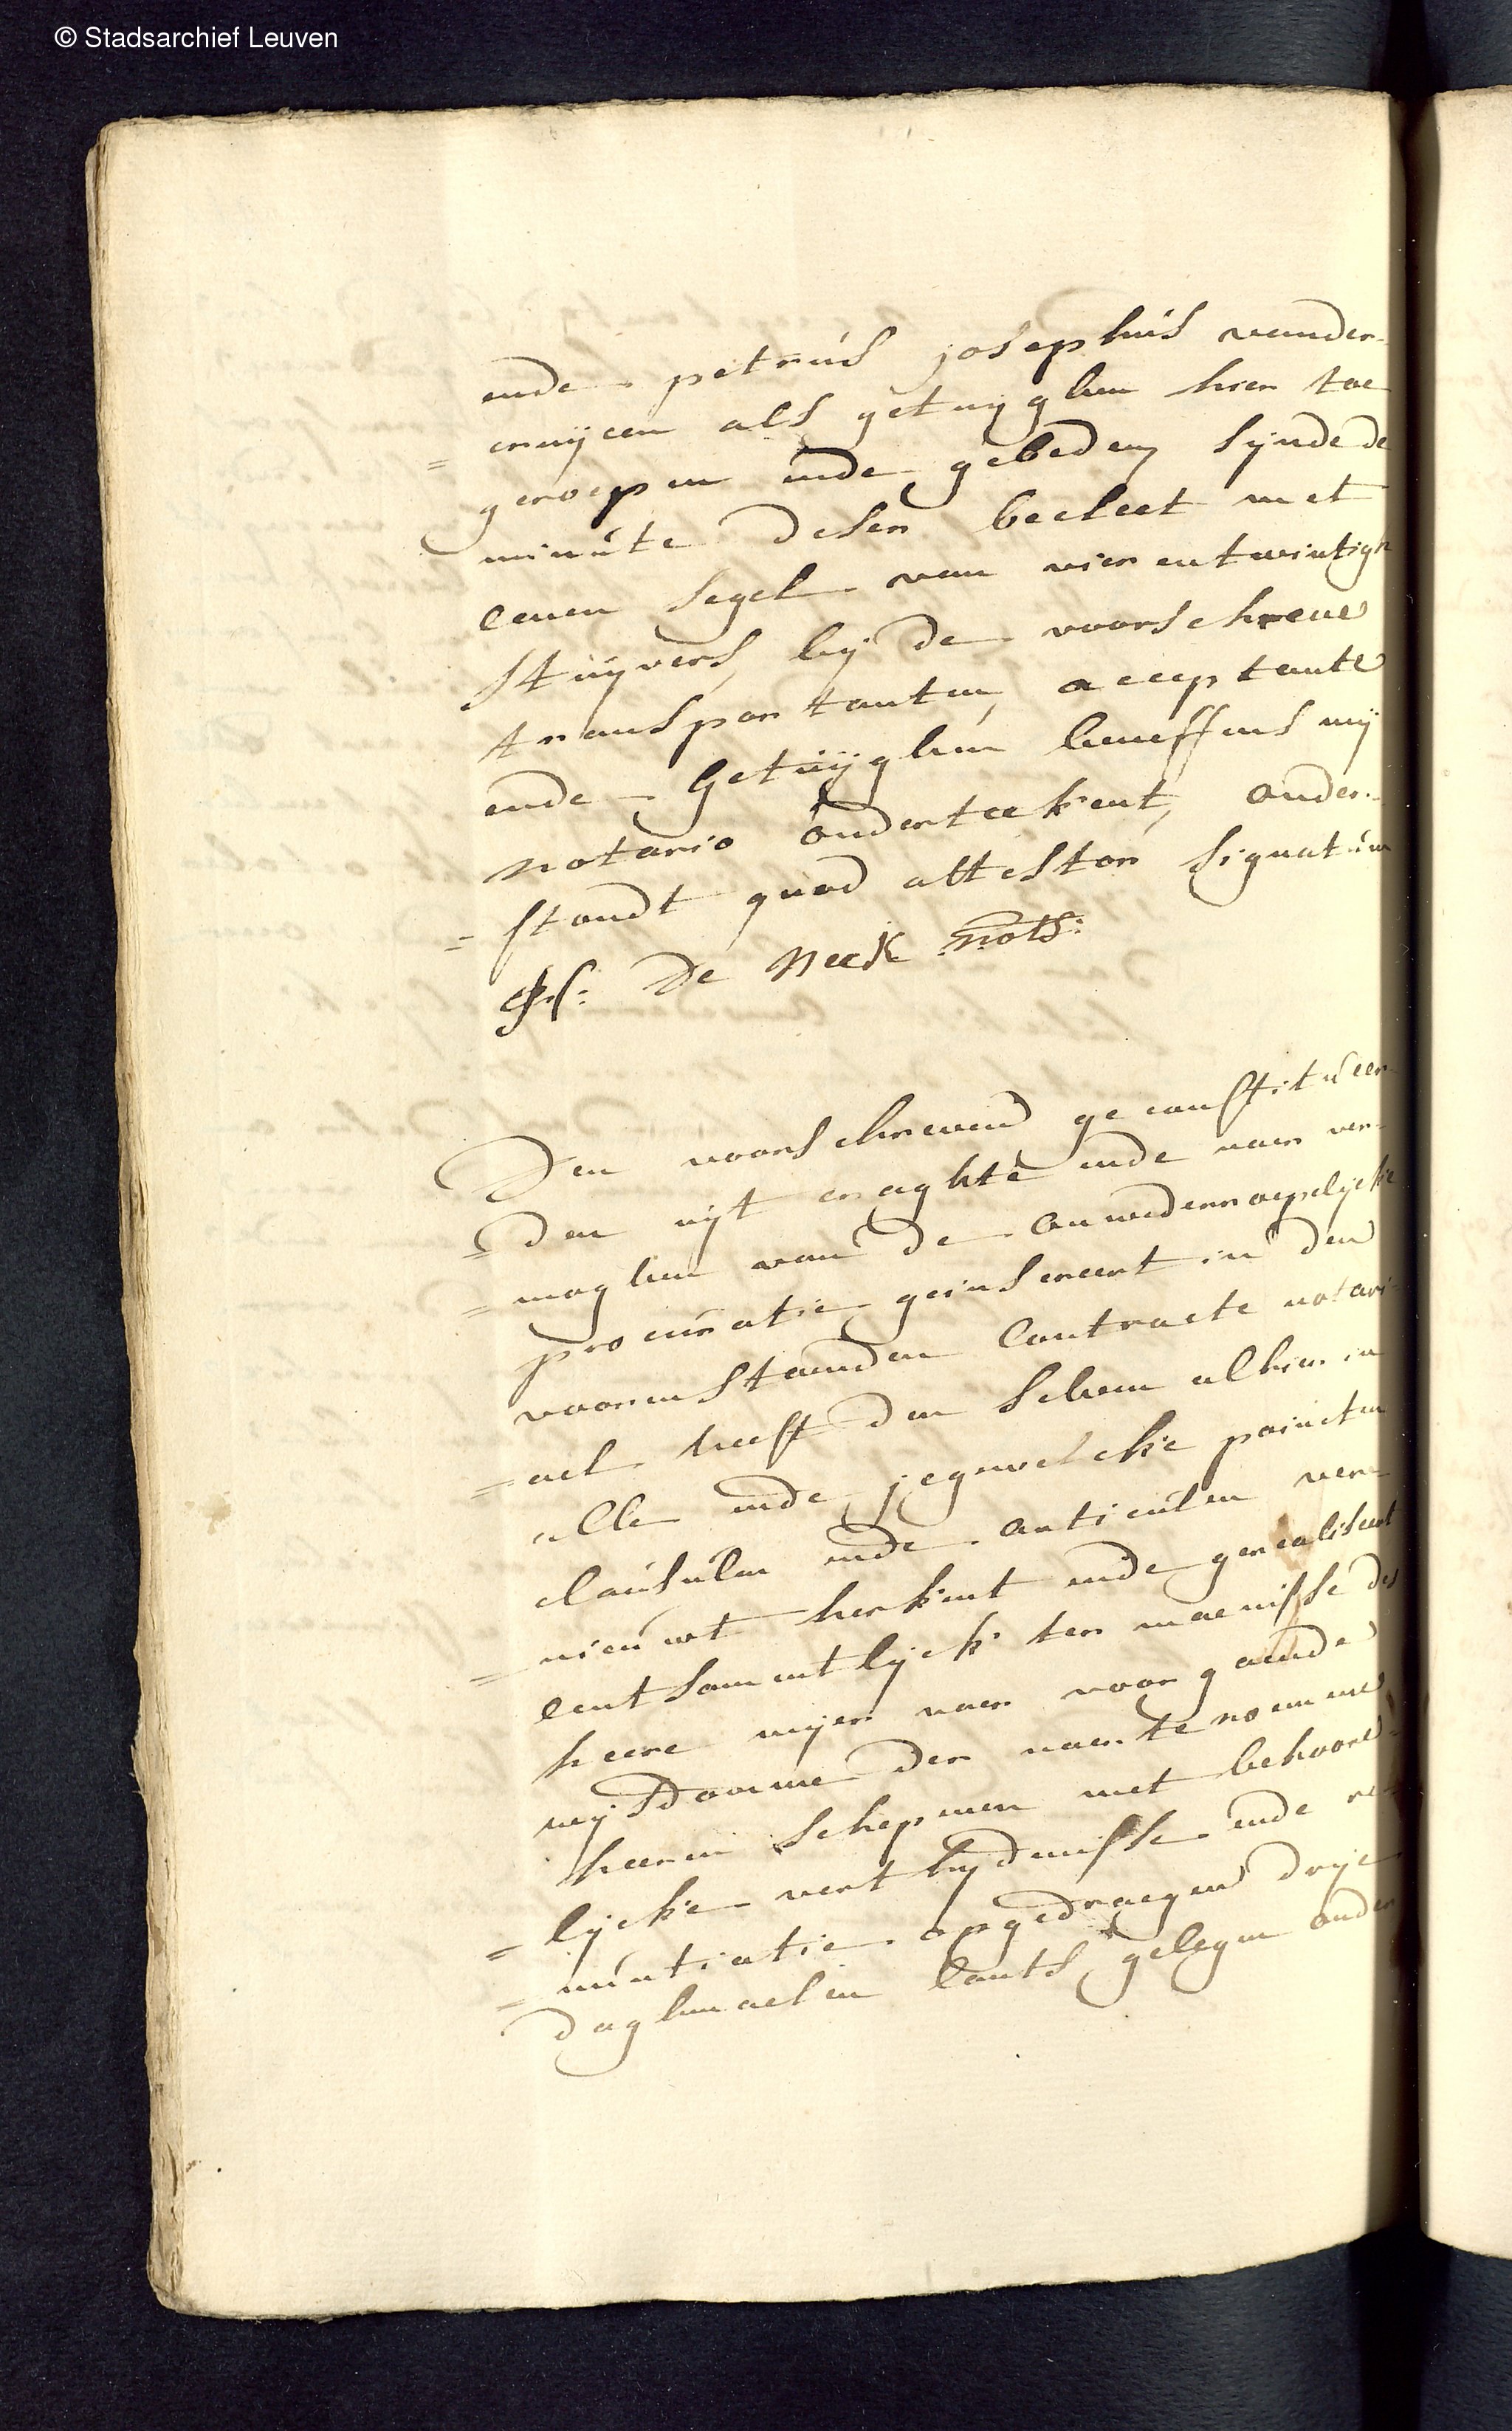 © Stadsarchief Leuven
ende petrus josephus vander-
= cruijcen als getuijghen hier toe
geroepen ende gebeden sijnde de
minute deser becleet met
eenen segel van vierentwintigh
stuijvers, bij de voorschreve
transportanten, acceptante
ende Getuijghen beneffens mij
notario onderteekent, onder-
= stondt quod attestor signatum
De Neck nots:
Den voorschreven geconstitueer-
= den uijt craghte ende naer ver-
= moghen van de onwederroepelijcke
procuratie geinsereert in den
voorenstaenden Contracte notari-
= ael heeft den selven alhier in
alle ende jegewelcke poincten
clausulen ende articulen ver-
= nieuwt herkent ende gerealiseert
centsamentlijck ter maenisse des
heere meijer naer voorgaende
wijsdomme der naertenoemene
heeren schepenen met behoore-
= lijcke vertheijdenisse ende re-
= nuntiatie opgedraegen drije
daghmaelen lants gelegen onder